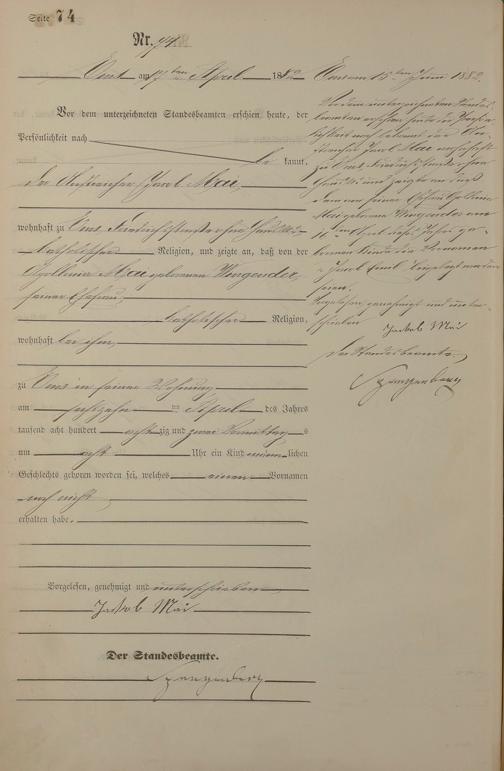 Seite 74
Nr. 74.
Ems am 17ten April 1882
Vor dem unterzeichneten Standesbeamten erschien heute, der
Persönlichkeit nach
be kannt,
der Anstreicher Jacob Mai,
wohnhaft zu Ems, Friedrichstraße
katholischer Religion, und zeigte an, daß von der
Apollonia Mai geborenen Wingender,
seiner Ehefrau,
katholischer Religion,
wohnhaft bei ihm,
zu Ems in seiner Wohnung
am sechszehn ten April des Jahres
tausend acht hundert acht zig und zwei Vormittags
um acht Uhr ein Kind männlichen
Geschlechts geboren worden sei, welches einen Vornamen
noch nicht
erhalten habe.
Vorgelesen, genehmigt und unterschrieben
Jakob Mai
Der Standesbeamte.
Spangenberg
Ems am 15ten Juni 1882.
Vor dem unterzeichneten Standes-
beamten erschien heute der Persön-
lichkeit nach bekannt der An-
streicher Jacob Mai wohnhaft
zu Ems, Friedrichstraße
und zeigte an, daß
dem von seiner Ehefrau Apollonia
Mai geborenen Wingender
ge-
borenen Kinde die Vornamen
Jacob Emil beigelegt worden
seien.
Vorgelesen, genehmigt und unter-
schrieben Jakob Mai
Der Standesbeamte.
Spangenberg